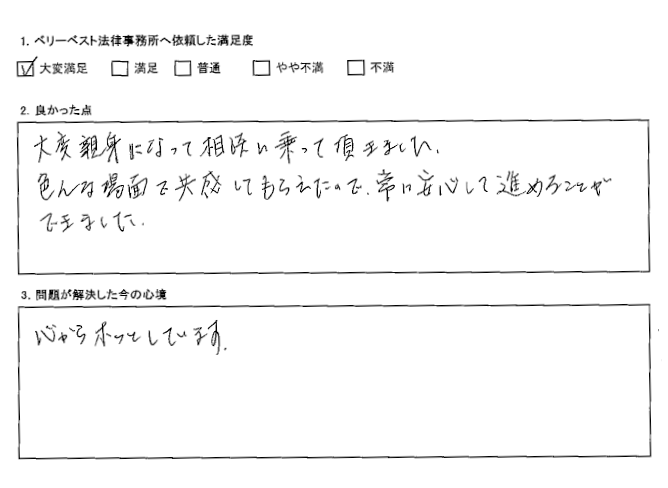 1. ベリーベスト法律事務所へ依頼した満足度
☑ 大変満足 □ 満足 □ 普通 □ やや不満 □ 不満
2. 良かった点
大変親身になって相談に乗って頂きました。
色んな場面で共感してもらえたので、常に安心して進めることが
できました。
3. 問題が解決した今の心境
心からホッとしています。